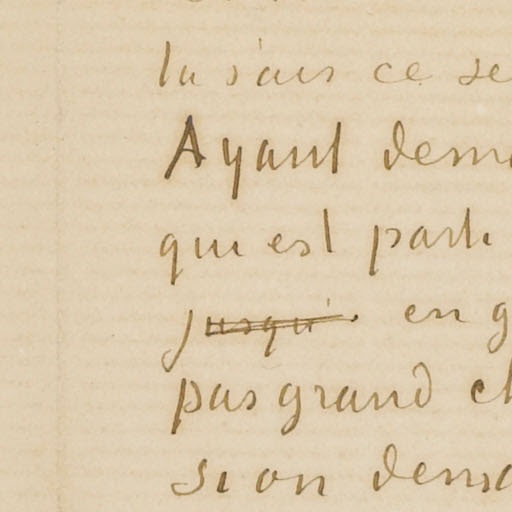 tu sais ce se
Ayant dema
qui est parti
jusqu'. en g
pas grand ch
si on dema